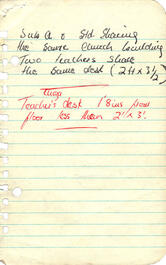 Sub A & Std Sharing
the same Church building
Two teachers share
the same desk (2ft x 3½)
Teacher's desk 1'8ins from
floor less than 2' x 3'.